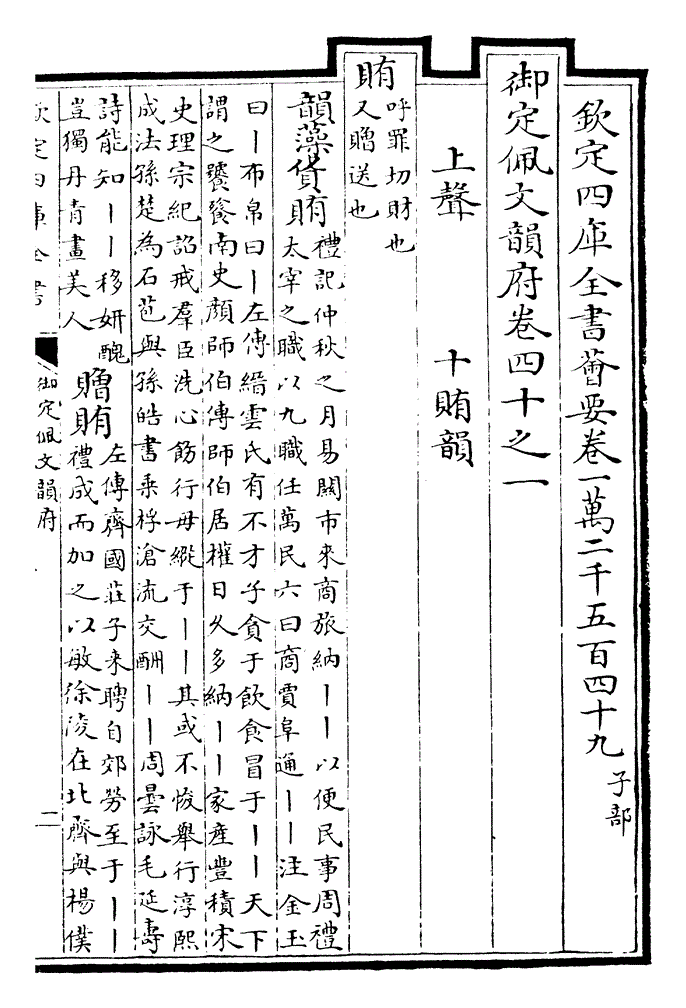 欽定四庫全書薈要卷一萬二千五百四十九 子部
御定佩文韻府卷四十之一
上聲 十賄韻
賄 呼罪切財也
又贈送也
韻藻 貨賄 禮記仲秋之月易關市來商旅納丨丨以便民事周禮
太宰之職以九職任萬民六曰商賈阜通丨丨注金玉
曰丨布帛曰丨左傳縉雲氏有不才子貪于飲食冒于丨丨天下
謂之饕餮南史顏師伯傳師伯居權日久多納丨丨家產豐積宋
史理宗紀詔戒羣臣洗心飭行毋縱于丨丨其或不悛舉行淳熙
成法孫楚為石苞與孫皓書乘桴滄流交酬丨丨周曇詠毛延壽
詩能知丨丨移妍醜
豈獨丹青畫美人
贈賄 左傳齊國莊子来聘自郊勞至于丨丨
禮成而加之以敏徐陵在北齊與楊僕
欽定四庫全書
御定佩文韻府
二